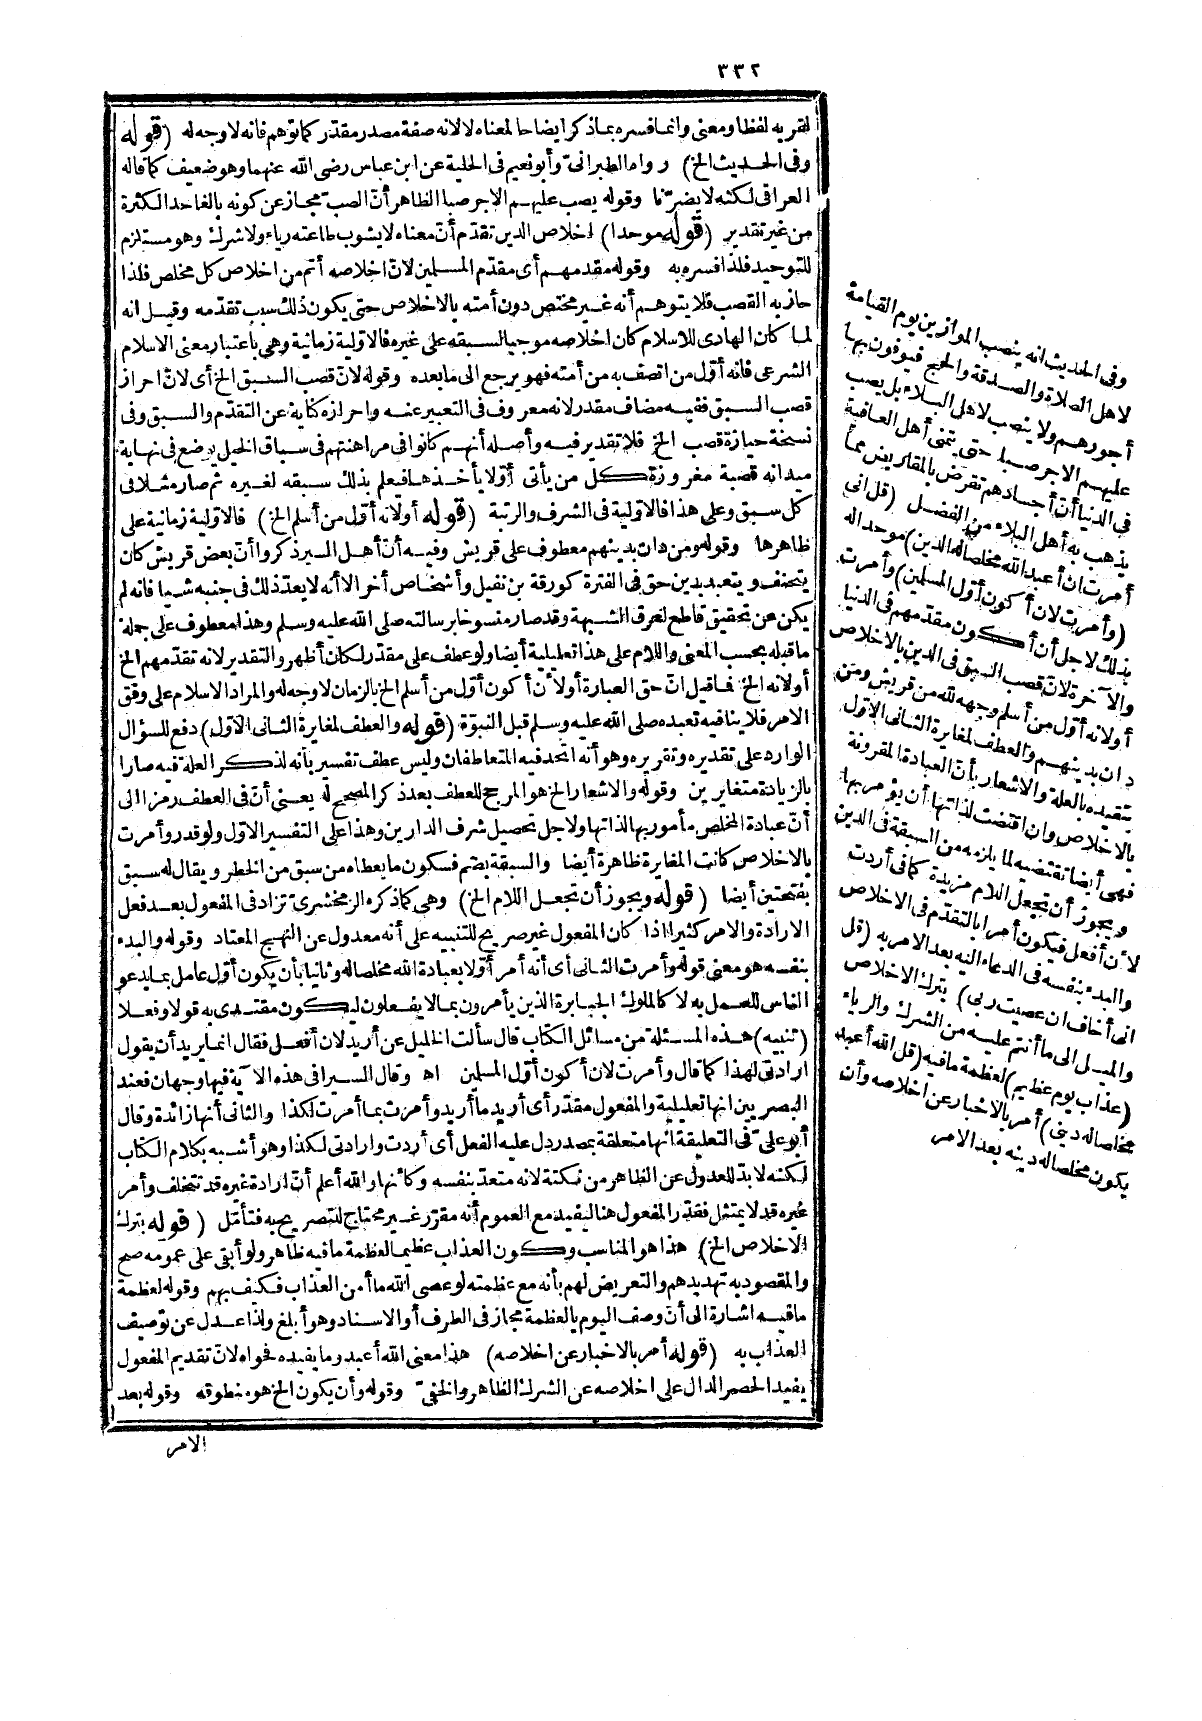 ٣٣٢
لقربه لفظا ومعنى وانما فسره بماذكر ايضاحا لمعناه لا لانه صفة مصدر مقدّر كما توهم فانه لا وجه له (قوله
وفى الحديث الخ) رواه الطبرانىّ وأبو نعيم فى الحلية عن ابن عباس رضى الله عنهما وهو ضعيف كما قاله
العراقى لكنه لا يضرّنا وقوله يصب عليهم الاجر صبا الظاهر أنّ الصبّ مجاز عن كونه بالغا حد الكثرة
من غير تقدير (قوله موحدا) اخلاص الدين تقدّم أنّ معناه لا يشوب طاعته رياء ولا شرك وهو مستلزم
للتوحيد فلذا فسره به وقوله مقدمهم أى مقدّم المسلمين لانّ اخلاصه أتم من اخلاص كل مخلص فلذا
حاز به القصب فلا يتوهم أنه غير مختص دون أمته بالاخلاص حتى يكون ذلك سبب تقدّمه وقيل انه
لما كان الهادى للاسلام كان اخلاصه موجبا لسبقه على غيره فالاولية زمانية وهى باعتبار معنى الاسلام
الشرعى فانه أوّل من اتصف به من أمته فهو يرجع الى ما بعده وقوله لانّ قصب السبق الخ أى لانّ احراز
قصب السبق ففيه مضاف مقدر لانه معروف فى التعبير عنه واحرازه كناية عن التقدّم والسبق وفى
نسخة حيازة قصب الخ فلا تقدير فيه وأصله أنهم كانوا فى مراهنتهم فى سباق الخيل يوضع فى نهاية
ميدانه قصبة مغروزة كل من يأتى أوّلا يأخذها فيعلم بذلك سبقه لغيره ثم صار مثلا فى
كل سبق وعلى هذا فالاولية فى الشرف والرتبة (قوله أو لانه أوّل من أسلم الخ) فالاولية زمانية على
ظاهرها وقوله ومن دان بدينهم معطوف على قريش وفيه أنّ أهل السير ذكروا أنّ بعض قريش كان
يتحنف ويتعبد بدين حق فى الفترة كورقة بن نفيل وأشخاص أخر الا أنه لا يعدّ ذلك فى جنبه شيأ فانه لم
يكن عن تحقيق قاطع لعرق الشبهة وقد صار منسوخا برسالته صلى الله عليه وسلم وهذا معطوف على جملة
ما قبله بحسب المعنى واللام على هذا تعليلية أيضا ولو عطف على مقدّر لكان أظهر والتقدير لانه تقدّمهم الخ
أو لانه الخ فما قيل انّ حق العبارة أولأن أكون أوّل من أسلم الخ بالزمان لا وجه له والمراد الاسلام على وفق
الامر فلا ينافيه تعبده صلى الله عليه وسلم قبل النبوّة (قوله والعطف لمغايرة الثانى الاوّل) دفع للسؤال
الوارد على تقديره وتقريره وهو أنه اتحد فيه المتعاطفان وليس عطف تفسير بأنه لذكر العلة فيه صارا
بالزيادة متغايرين وقوله والاشعار الخ هو المرجح للعطف بعد ذكر المصحح له يعنى أنّ فى العطف رمزا الى
أنّ عبادة المخلص مأمور بها لذاتها ولاجل تحصيل شرف الدارين وهذا على التفسير الاوّل ولو قدر وأمرت
بالاخلاص كانت المغايرة ظاهرة أيضا والسبقة بضم فسكون ما يعطاه من سبق من الخطر ويقال له سبق
بفتحتين أيضا (قوله ويجوز أن تجعل اللام الخ) وهى كما ذكره الزمخشرى تزاد فى المفعول بعد فعل
الارادة والامر كثيرا اذا كان المفعول غير صريح للتنبيه على أنه معدول عن النهج المعتاد وقوله والبدء
بنفسه هو معنى قوله وأمرت الثانى أى أنه أمر أوّلا بعبادة الله مخلصا له وثانيا بأن يكون أوّل عامل بما يدعو
الناس للعمل به لا كالملوك الجبابرة الذين يأمرون بما لا يفعلون ليكون مقتدى به قولا وفعلا
(تنبيه) هذه المسئلة من مسائل الكتاب قال سألت الخليل عن أريد لان أفعل فقال انما يريد أن يقول
ارادتى لهذا كما قال وأمرت لان أكون أوّل المسلمين اه وقال السيرافى فى هذه الآية فيها وجهان فعند
البصريين انها تعليلية والمفعول مقدّر أى أريد ما أريد وأمرت بما أمرت لكذا والثانى أنها زائدة وقال
أبو علىّ فى التعليقة انها متعلقة بمصدر دل عليه الفعل أى أردت وارادتى لكذا وهو أشبه بكلام الكتاب
لكنه لا بدّ للعدول عن الظاهر من نكتة لانه متعد بنفسه وكأنها والله أعلم أنّ ارادة غيره قد تتخلف وأمر
غيره قد لا يمتثل فقدّر المفعول هنا ليفيد مع العموم أنه مقرّر غير محتاج للتصريح به فتأمّل (قوله بترك
الاخلاص الخ) هذا هو المناسب وكون العذاب عظيما لعظمة ما فيه ظاهر ولو أبقى على عمومه صح
والمقصود به تهديدهم والتعريض لهم بأنه مع عظمته لو عصى الله ما أمن العذاب فكيف بهم وقوله لعظمة
ما فيه اشارة الى أنّ وصف اليوم بالعظمة مجاز فى الطرف أو الاسناد وهو أبلغ ولذا عدل عن توصيف
العذاب به (قوله أمر بالاخبار عن اخلاصه) هذا معنى الله أعبد وما يفيده فحواه لانّ تقديم المفعول
يفيد الحصر الدال على اخلاصه عن الشرك الظاهر والخفىّ وقوله وأن يكون الخ هو منطوقه وقوله بعد
الامر
وفى الحديث انه ينصب الموازين يوم القيامة
لاهل الصلاة والصدقة والحج فيوفون بها
أجورهم ولا ينصب لاهل البلاء بل يصب
عليهم الاجر صبا حتى يتمنى أهل العافية
فى الدنيا أنّ أجسادهم تقرض بالمقاريض مما
يذهب به أهل البلاء من الفضل (قل انى
أمرت ان أعبد الله مخلصا له الدين) موحدا له
(وأمرت لان أكون أوّل المسلمين) وأمرت
بذلك لاجل أن أكون مقدّمهم فى الدنيا
والآخرة لانّ قصب السبق فى الدين بالاخلاص
أو لانه أوّل من أسلم وجهه لله من قريش ومن
دان بدينهم والعطف لمغايرة الثانى الاوّل
بتقيده بالعلة والاشعار بأنّ العبادة المقرونة
بالاخلاص وان اقتضت لذاتها أن يؤمر بها
فهى أيضا تقتضيه لما يلزمه من السبقة فى الدين
ويجوز أن تجعل اللام مزيدة كما فى أردت
لأن أفعل فيكون أمرا بالتقدّم فى الاخلاص
والبدء بنفسه فى الدعاء اليه بعد الامر به (قل
انى أخاف ان عصيت ربى) بترك الاخلاص
والميل الى ما أنتم عليه من الشرك والرياء
(عذاب يوم عظيم) لعظمة ما فيه (قل الله أعبد
مخلصا له دينى) أمر بالاخبار عن اخلاصه وأن
يكون مخلصا له دينه بعد الامر